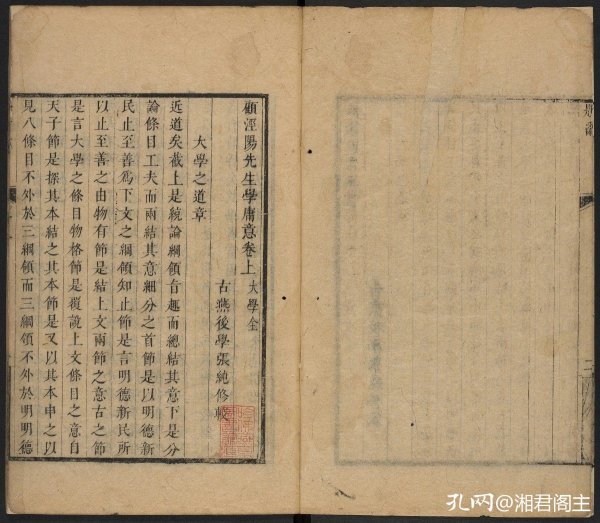 顧涇陽先生學庸意卷上 大學全
古燕後學張純修較
大學之道章
近道矣截上是統論綱領旨趣而總結其意下是分
論條目工夫而兩結其意細分之首節是以明德新
民止至善爲下文之綱領知止節是言明德新民所
以止至善之由物有節是結上文兩節之意古之節
是言大學之條目物格節是覆說上文條目之意自
天子節是探其本結之其本節是又以其本申之以
見八條目不外於三綱領而三綱領不外於明明德
二
孔网@湘君阁主